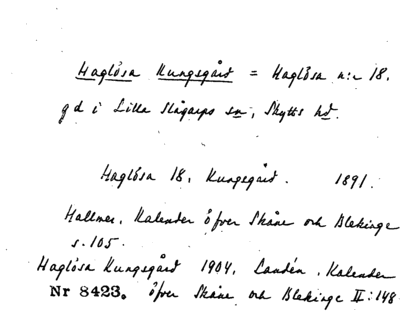 Haglösa Kungsgård = Haglösa n:r 18.
gd i Lilla Slågarps sn, Skytts hd.
Haglösa 18, Kungsgård. 1891.
Hallmer, Kalender öfver Skåne och Blekinge
s. 105.
Haglösa Kungsgård 1904. Landén, Kalender
Nr 8423. öfver Skåne och Blekinge II:148